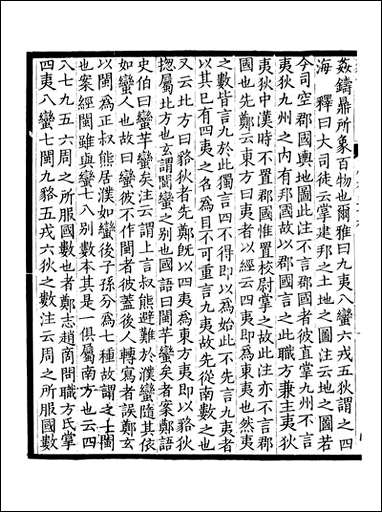 姦鑄鼎所象百物也爾雅曰九夷八蠻六戎五狄謂之四
海　釋曰大司徒云掌建邦之土地之圖注云地之圖若
今司空郡國輿地圖此注不言郡國者彼直掌九州不言
夷狄九州之內有邦國故以郡國言之此職方兼主夷狄
夷狄中漢時不置郡國惟置校尉掌之故此注亦不言郡
國也先鄭云東方曰夷者以經云四夷即爲東夷也然夷
之數皆言九於此獨言四不得即以爲始此不先言九夷者
以其已有四夷之名爲目不可重言九夷故先從南數之也
又云北方曰貉狄者先鄭旣以四夷爲東方夷即以貉狄
揔屬北方也玄謂閩蠻之別也國語曰閩芊蠻矣者案鄭語
史伯曰蠻芊蠻矣注云謂上言叔熊避難於濮蠻隨其俗
如蠻人也故曰蠻彼不作閩者彼蓋後人轉寫者誤鄭玄
以閩爲正叔熊居濮如蠻後子孫分爲七種故謂之七閩
也案經閩雖與蠻七八別數本其是一俱屬南方也云四
八七九五六周之所服國數也者鄭志趙商問職方氏掌
四夷八蠻七閩九貉五戎六狄之數注云周之所服國數